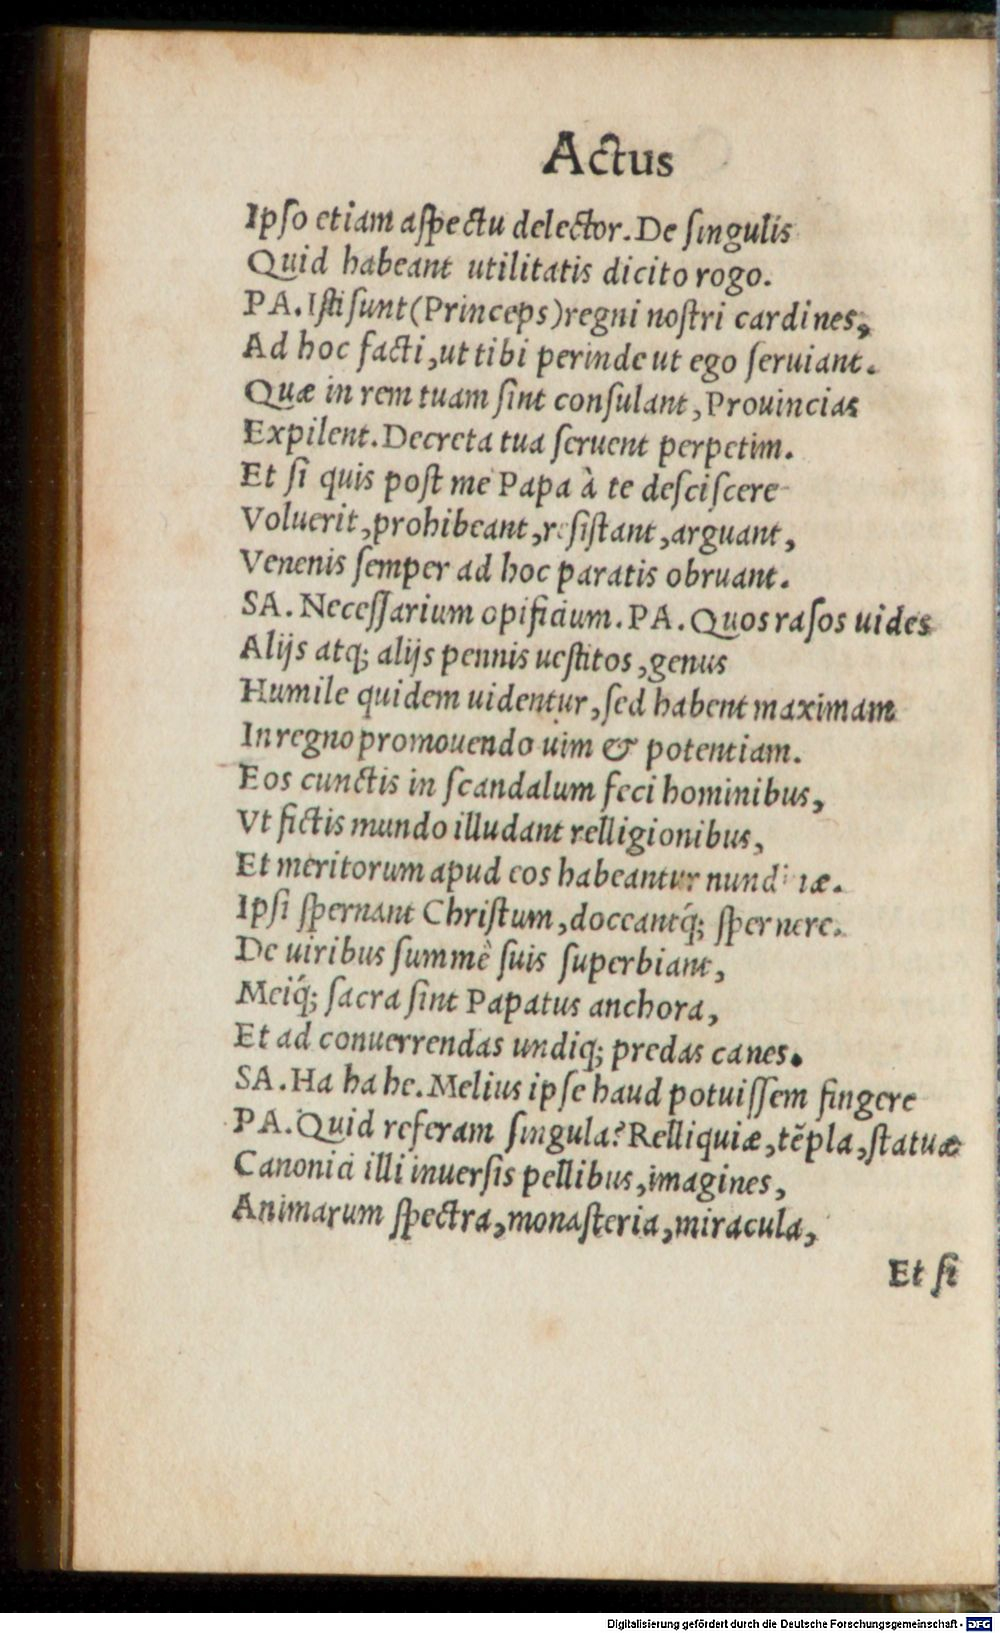 Actus
Ipſo etiam aſpectu delector. De ſingulis
Quid habeant utilitatis dicito rogo.
PA. Iſti ſunt (Princeps) regni noſtri cardines,
Ad hoc facti, ut tibi perinde ut ego ſeruiant.
Quæ in rem tuam ſint conſulant, Prouincias
Expilent. Decreta tua ſeruent perpetim.
Et ſi quis poſt me Papa à te deſciſcere
Voluerit, prohibeant, reſiſtant, arguant,
Venenis ſemper ad hoc paratis obruant.
SA. Neceſſarium opificium. PA. Quos raſos uides
Alijs atq; alijs pennis ueſtitos, genus
Humile quidem uidentur, ſed habent maximam
In regno promouendo uim & potentiam.
Eos cunctis in ſcandalum feci hominibus,
Vt fictis mundo illudant relligionibus,
Et meritorum apud eos habeantur
Ipſi ſpernant Chriſtum, doceantq́; ſpernere.
De uiribus ſummè ſuis ſuperbiant,
Meiq́; ſacra ſint Papatus anchora,
Et ad conuerrendas undiq; predas canes.
SA. Ha ha he. Melius ipſe haud potuiſſem fingere
PA. Quid referam ſingula? Relliquiæ, tẽpla, ſtatuæ
Canonici illi inuerſis pellibus, imagines,
Animarum ſpectra, monaſteria, miracula,
Et ſi
Digitalisierung gefördert durch die Deutsche Forschungsgemeinschaft - DFG